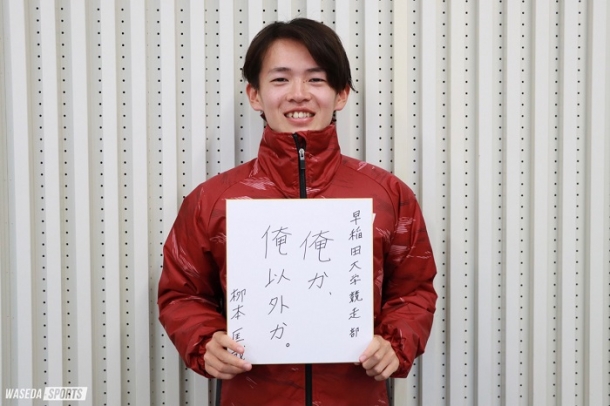 早稲田大学競走部
俺か、
俺以外か。
柳本匡哉
WASEDA SPORTS